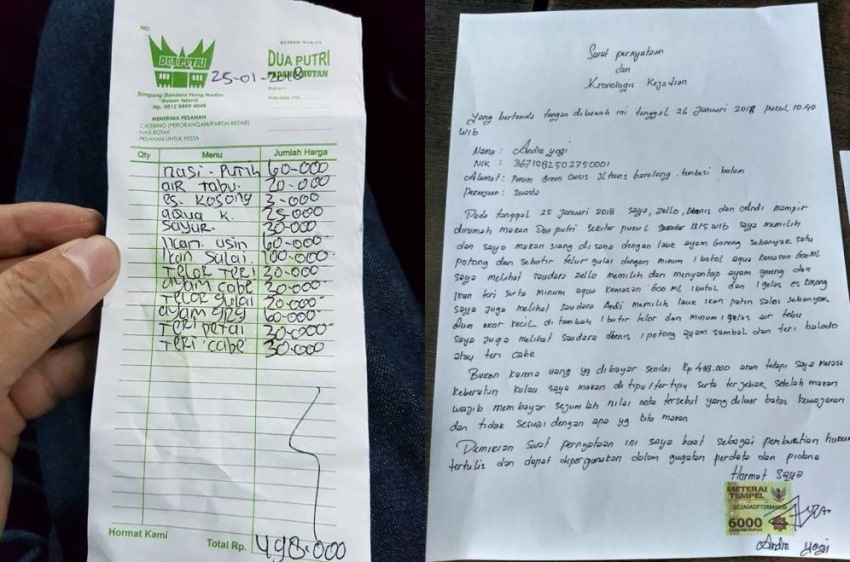 NO.
DUA PUTRI
25-01-2018
RUMAH MAKAN
DUA PUTRI
Simpang Bandara Hang Nadim
Batam Island
MENERIMA PESANAN
CATERING (PERORANGAN/PARTAI BESAR)
NASI KOTAK
PESANAN UNTUK PESTA
Qty Menu Jumlah Harga
nasi-Putih 60-000
air tabu. 20-000
es. kosong 3-000
aqua k. 25-000
sayur. 30-000
Ikan. usin 60-000
Ikan Salai. 100-000
Telor Teri 30-000
ayam cabe
Telor gulai 20-000
60-000
Teri petai
Teri cabe 30-000
Hormat Kami
Total Rp. 498-000
Surat pernyataan
dan
Kronologis Kejadian
Yang bertanda tangan dibawah ini tanggal 26 Januari 2018 pukul 10.40
WIB
Nama : Andre yogi
NIK : 3671082502750001
Alamat : Perum Green Oasis Jl trans barelang. tembesi batam
Pekerjaan : Swasta
Pada tanggal 25 Januari 2018 saya, Zello, Dhenis dan Andi mampir
dirumah makan Dua putri Sekitar pukul 1315 WIB saya memilih
dan saya makan siang di sana dengan lauk ayam Goreng sebanyak satu
potong dan sebutir telur gulai dengan minum 1 botol aqua kemasan 600 ml
saya melihat saudara zello memilih dan menyantap ayam goreng dan
Ikan teri serta minum aqua kemasan 600 ml 1 botol dan 1 gelas es kosong
saya juga melihat saudara Andi memilih lauk Ikan patin salai sebanyak
dua ekor kecil di tambah 1 butir telor dan minum 1 gelas air tebu
saya juga melihat saudara dhenis 1 potong ayam sambal dan teri balado
atau teri cabe
Bukan karena uang yg dibayar senilai Rp 498.000 akan tetapi saya merasa
keberatan kalau saya makan di tipu/tertipu serta terjebak setelah makan
wajib membayar sejumlah nilai nota tersebut yang diluar batas kewajaran
dan tidak sesuai dengan apa yg kita makan
Demikian Surat pernyataan ini saya buat sebagai pembuktian hukum
tertulis dan dapat dipergunakan dalam gugatan perdata dan pidana
Hormat Saya
METERAI
TEMPEL
6000
Andre yogi